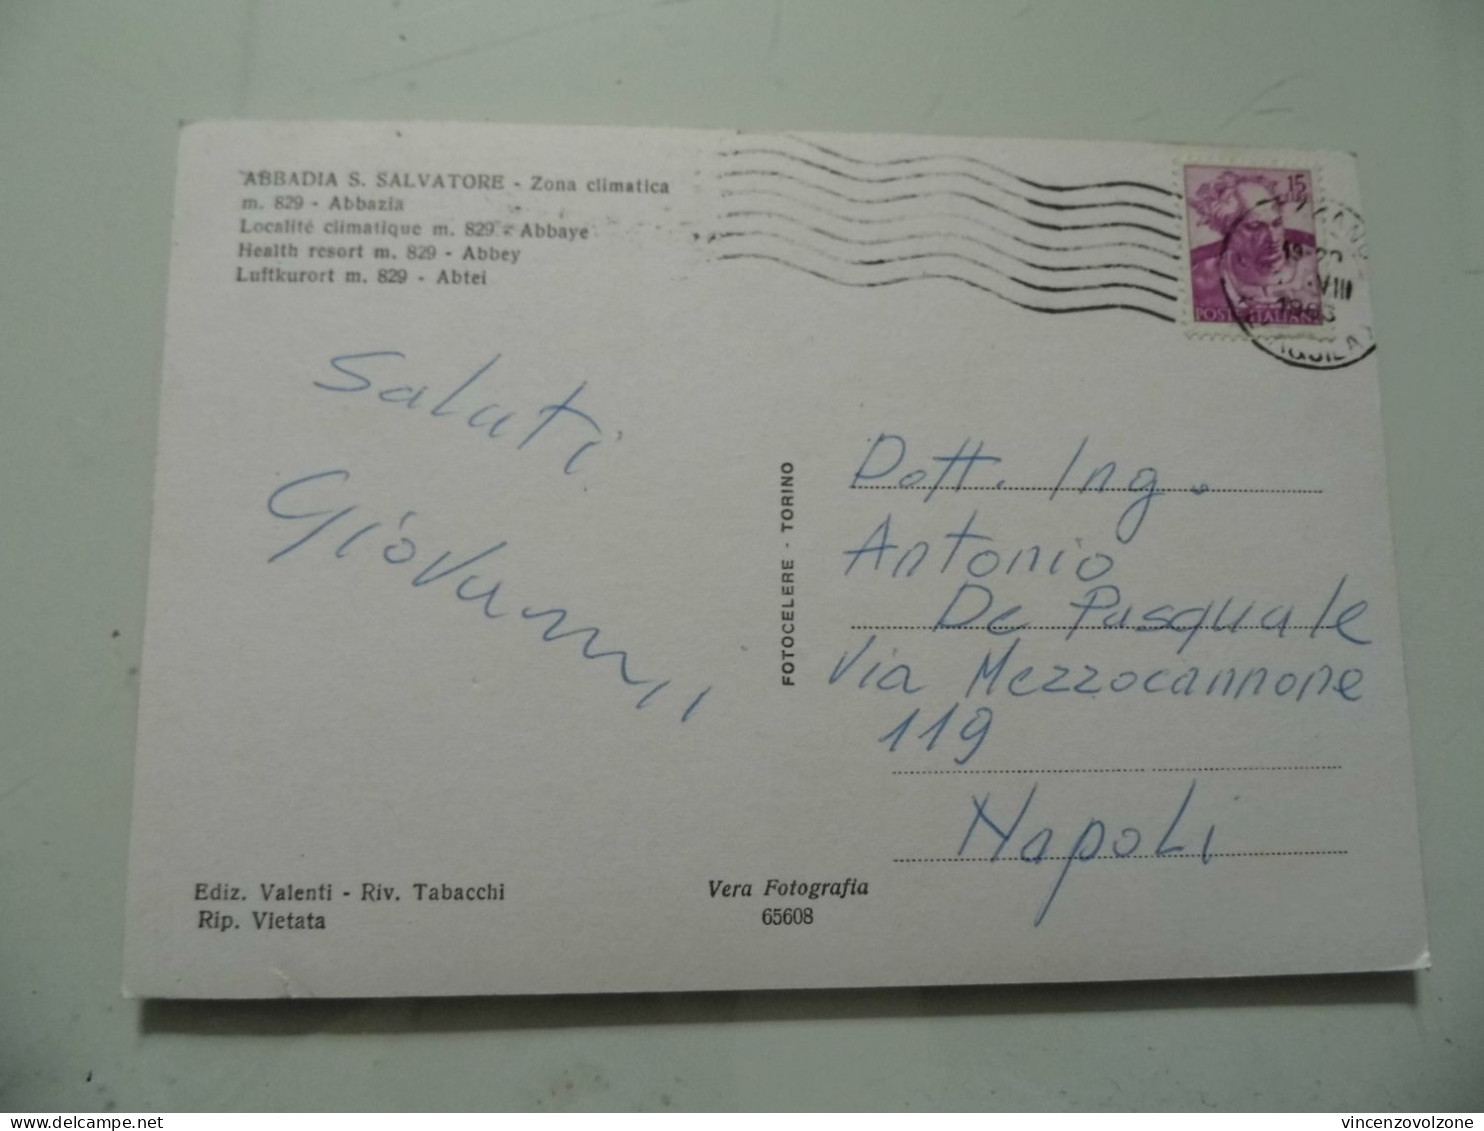 ABBADIA S. SALVATORE - Zona climatica
m. 829 - Abbazia
Localité climatique m. 829 - Abbaye
Health resort m. 829 - Abbey
Luftkurort m. 829 - Abtei
15
POSTE ITALIANE
19-20
VIII
1963
Saluti
Giovanni
FOTOCELERE - TORINO
Dott. Ing.
Antonio
De Pasquale
Via Mezzocannone
119
Napoli
Ediz. Valenti - Riv. Tabacchi
Rip. Vietata
Vera Fotografia
65608
vincenzovolzone